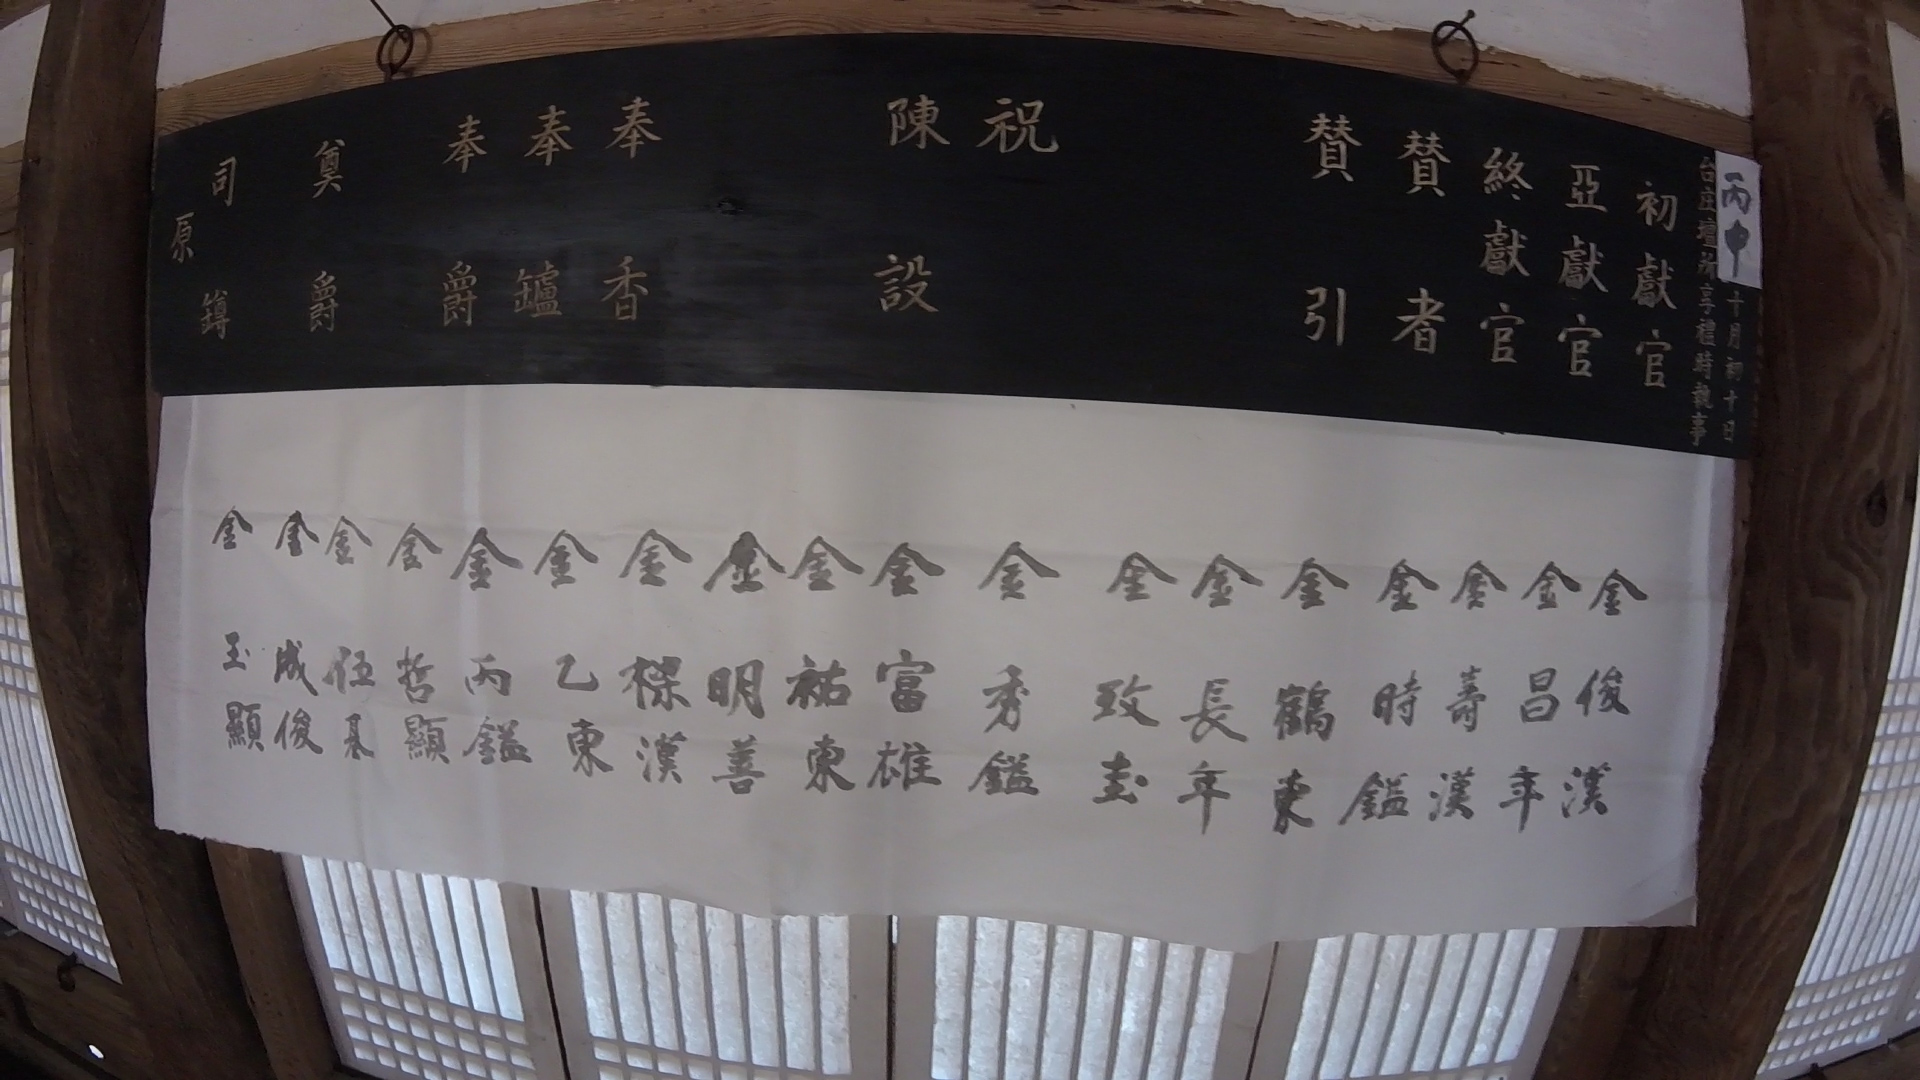 丙申十月初十日
台庄壇所享禮時執事
初獻官
亞獻官
終獻官
贊者
贊引
祝
陳設
奉香
奉鑪
奉爵
奠爵
司罇
原
金俊漢
金昌年
金壽漢
金時鎰
金鶴東
金長年
金致圭
金秀鎰
金富雄
金祐東
金明善
金漢
金乙東
金丙鎰
金哲顯
金伍基
金成俊
金玉顯